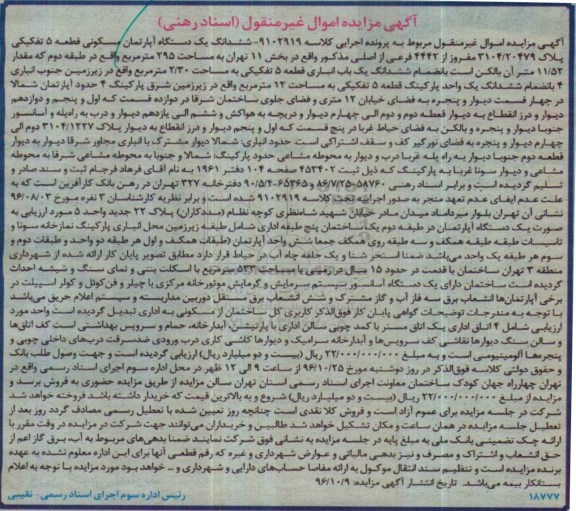 آگهی مزایده اموال غیرمنقول (اسناد رهنی)
آگهی مزایده اموال غیرمنقول مربوط به پرونده اجرایی کلاسه ۹۱۰۲۹۱۹- ششدانگ یک دستگاه آپارتمان مسکونی قطعه ۵ تفکیکی
پلاک ۳۱۰۴/۲۰۴۷۹ مفروز از ۴۴۴۲ فرعی از اصلی مذکور واقع در بخش ۱۱ تهران به مساحت ۲۹۵ مترمربع واقع در طبقه دوم که مقدار
۱۱/۵۲ متر آن بالکن است بانضمام ششدانگ یک باب انباری قطعه ۵ تفکیکی به مساحت ۲/۳۰ مترمربع واقع در زیرزمین جنوب انباری
۴ بانضمام ششدانگ یک واحد پارکینگ قطعه ۵ تفکیکی به مساحت ۱۲ مترمربع واقع در زیرزمین شرق پارکینگ ۴ حدود آپارتمان شمالا
در چهار قسمت دیوار و پنجره به فضای خیابان ۱۲ متری و فضای جلوی ساختمان شرقا در دوازده قسمت که اول و پنجم و دوازدهم
دیوار و درز انقطاع به دیوار قطعه دوم و دوم الی چهارم دیوار و دریچه به هواکش و ششم الی یازدهم دیوار و درب به راه‌پله و آسانسور
جنوبا دیوار و پنجره و بالکن به فضای حیاط غربا در پنج قسمت که اول و پنجم دیوار و درز انقطاع به دیوار پلاک ۳۱۰۴/۱۲۲۷ دوم الی
چهارم دیوار و پنجره به فضای نورگیر کف و سقف اشتراکی است. حدود انباری: شمالا دیوار مشترک با انباری مجاور شرقا دیوار به دیوار
قطعه دوم جنوبا دیوار به راه پله غربا درب و دیوار به محوطه مشاعی حدود پارکینگ: شمالا و جنوبا به محوطه مشاعی شرقا به محوطه
مشاعی و دیوار سوئا غربا به پارکینگ که ذیل ثبت ۴۵۳۴۰۲ صفحه ۱۰۴ دفتر ۱۹۶۱ به نام آقای فرهاد فرجام ثبت و سند صادر و
تسلیم گردیده است و برابر اسناد رهنی ۵۸۷۶۰-۸۶/۷/۲۵ و ۶۵۳۶۵-۹۰/۵/۴ دفترخانه ۳۲۷ تهران در رهن بانک کارآفرین است که به
علت عدم ایفای عدم تعهد منجر به صدور اجرائیه تحت کلاسه ۹۱۰۲۹۱۹ شده است و برابر نظریه کارشناسان ۳ نفره مورخ ۹۶/۰۸/۰۳
نشانی آن تهران بلوار میرداماد میدان مادر خیابان شهید شاه‌نظری کوچه نظام (مددکاران) پلاک ۲۲ جدید واحد ۵ مورد ارزیابی به
صورت یک دستگاه آپارتمان در طبقه دوم یک ساختمان پنج طبقه اداری شامل طبقه زیرزمین محل انباری پارکینگ نمازخانه سونا و
تاسیسات طبقه همکف و سه طبقه روی همکف جمعا شش واحد آپارتمان (طبقات همکف و اول هر طبقه دو واحد و طبقات دوم و
سوم هر طبقه یک واحد می‌باشد ضمنا استخر شنا و یک حلقه چاه آب در حیاط قرار دارد مطابق تصویر پایان کار ارائه شده از شهرداری
منطقه ۳ تهران ساختمان با قدمت در حدود ۱۵ سال در زمینی به مساحت مترمربع با اسکلت بتنی و نمای سنگ و شیشه احداث
گردیده است ساختمان دارای یک دستگاه آسانسور سیستم سرمایش و گرمایش موتورخانه مرکزی با چیلر و فن‌کوئل و کولر اسپیلت در
برخی آپارتمان‌ها انشعاب برق سه فاز آب و گاز مشترک و شش انشعاب برق مستقل دوربین مداربسته و سیستم اعلام حریق می‌باشد
با توجه به مندرجات توضیحات گواهی پایان کار فوق‌الذکر کاربری کل ساختمان از مسکونی به اداری تبدیل گردیده است واحد مورد
ارزیابی شامل ۴ اتاق اداری یک اتاق مستر با کمد چوبی سالن اداری با پارتیشن آبدارخانه، حمام و سرویس بهداشتی است کف اتاق‌ها
و سالن سنگ دیوارها نقاشی کف سرویس‌ها و آبدارخانه سرامیک و دیوارها کاشی کاری درب ورودی ضدسرقت درب‌های داخلی چوبی و
پنجره‌ها آلومینیومی است و به مبلغ ۲۲/۰۰۰/۰۰۰/۰۰۰ ریال (بیست و دو میلیارد ریال) ارزیابی گردیده است و جهت وصول طلب بانک
و حقوق دولتی کلاسه فوق‌الذکر در روز دوشنبه مورخ ۹۶/۱۰/۲۵ از ساعت ۹ الی ۱۲ ظهر در محل اداره سوم اجرای اسناد رسمی واقع در
تهران چهارراه جهان کودک ساختمان معاونت اجرای اسناد رسمی استان تهران سالن مزایده از طریق مزایده حضوری به فروش برسد و
مزایده از مبلغ ۲۲/۰۰۰/۰۰۰/۰۰۰ ریال (بیست و دو میلیارد ریال) شروع و به بالاترین قیمت که خریدار داشته باشد فروخته خواهد شد
شرکت در جلسه مزایده برای عموم آزاد است و فروش کلا نقدی است چنانچه روز تعیین شده با تعطیل رسمی مصادف گردد روز بعد از
تعطیل جلسه مزایده در همان ساعت و مکان تشکیل خواهد شد طالبین و خریداران می‌توانند جهت شرکت در مزایده در وقت مقرر با
ارائه چک تضمینی بانک ملی به مبلغ پایه در جلسه مزایده به نشانی فوق شرکت نمایند ضمنا بدهی‌های مربوط به آب، برق گاز اعم از
حق انشعاب و اشتراک و مصرف و نیز بدهی مالیاتی و عوارض شهرداری و غیره که رقم قطعی آنها برای این اداره معلوم نشده به عهده
برنده مزایده است و تنظیم سند انتقال موکول به ارائه مفاصا حساب‌های دارایی و شهرداری و .. خواهد بود مورد مزایده با توجه به اعلام
بستانکار بیمه می‌باشد. تاریخ انتشار آگهی مزایده: ۹۶/۱۰/۹
۱۸۷۷۷ رئیس اداره سوم اجرای اسناد رسمی - نقیبی